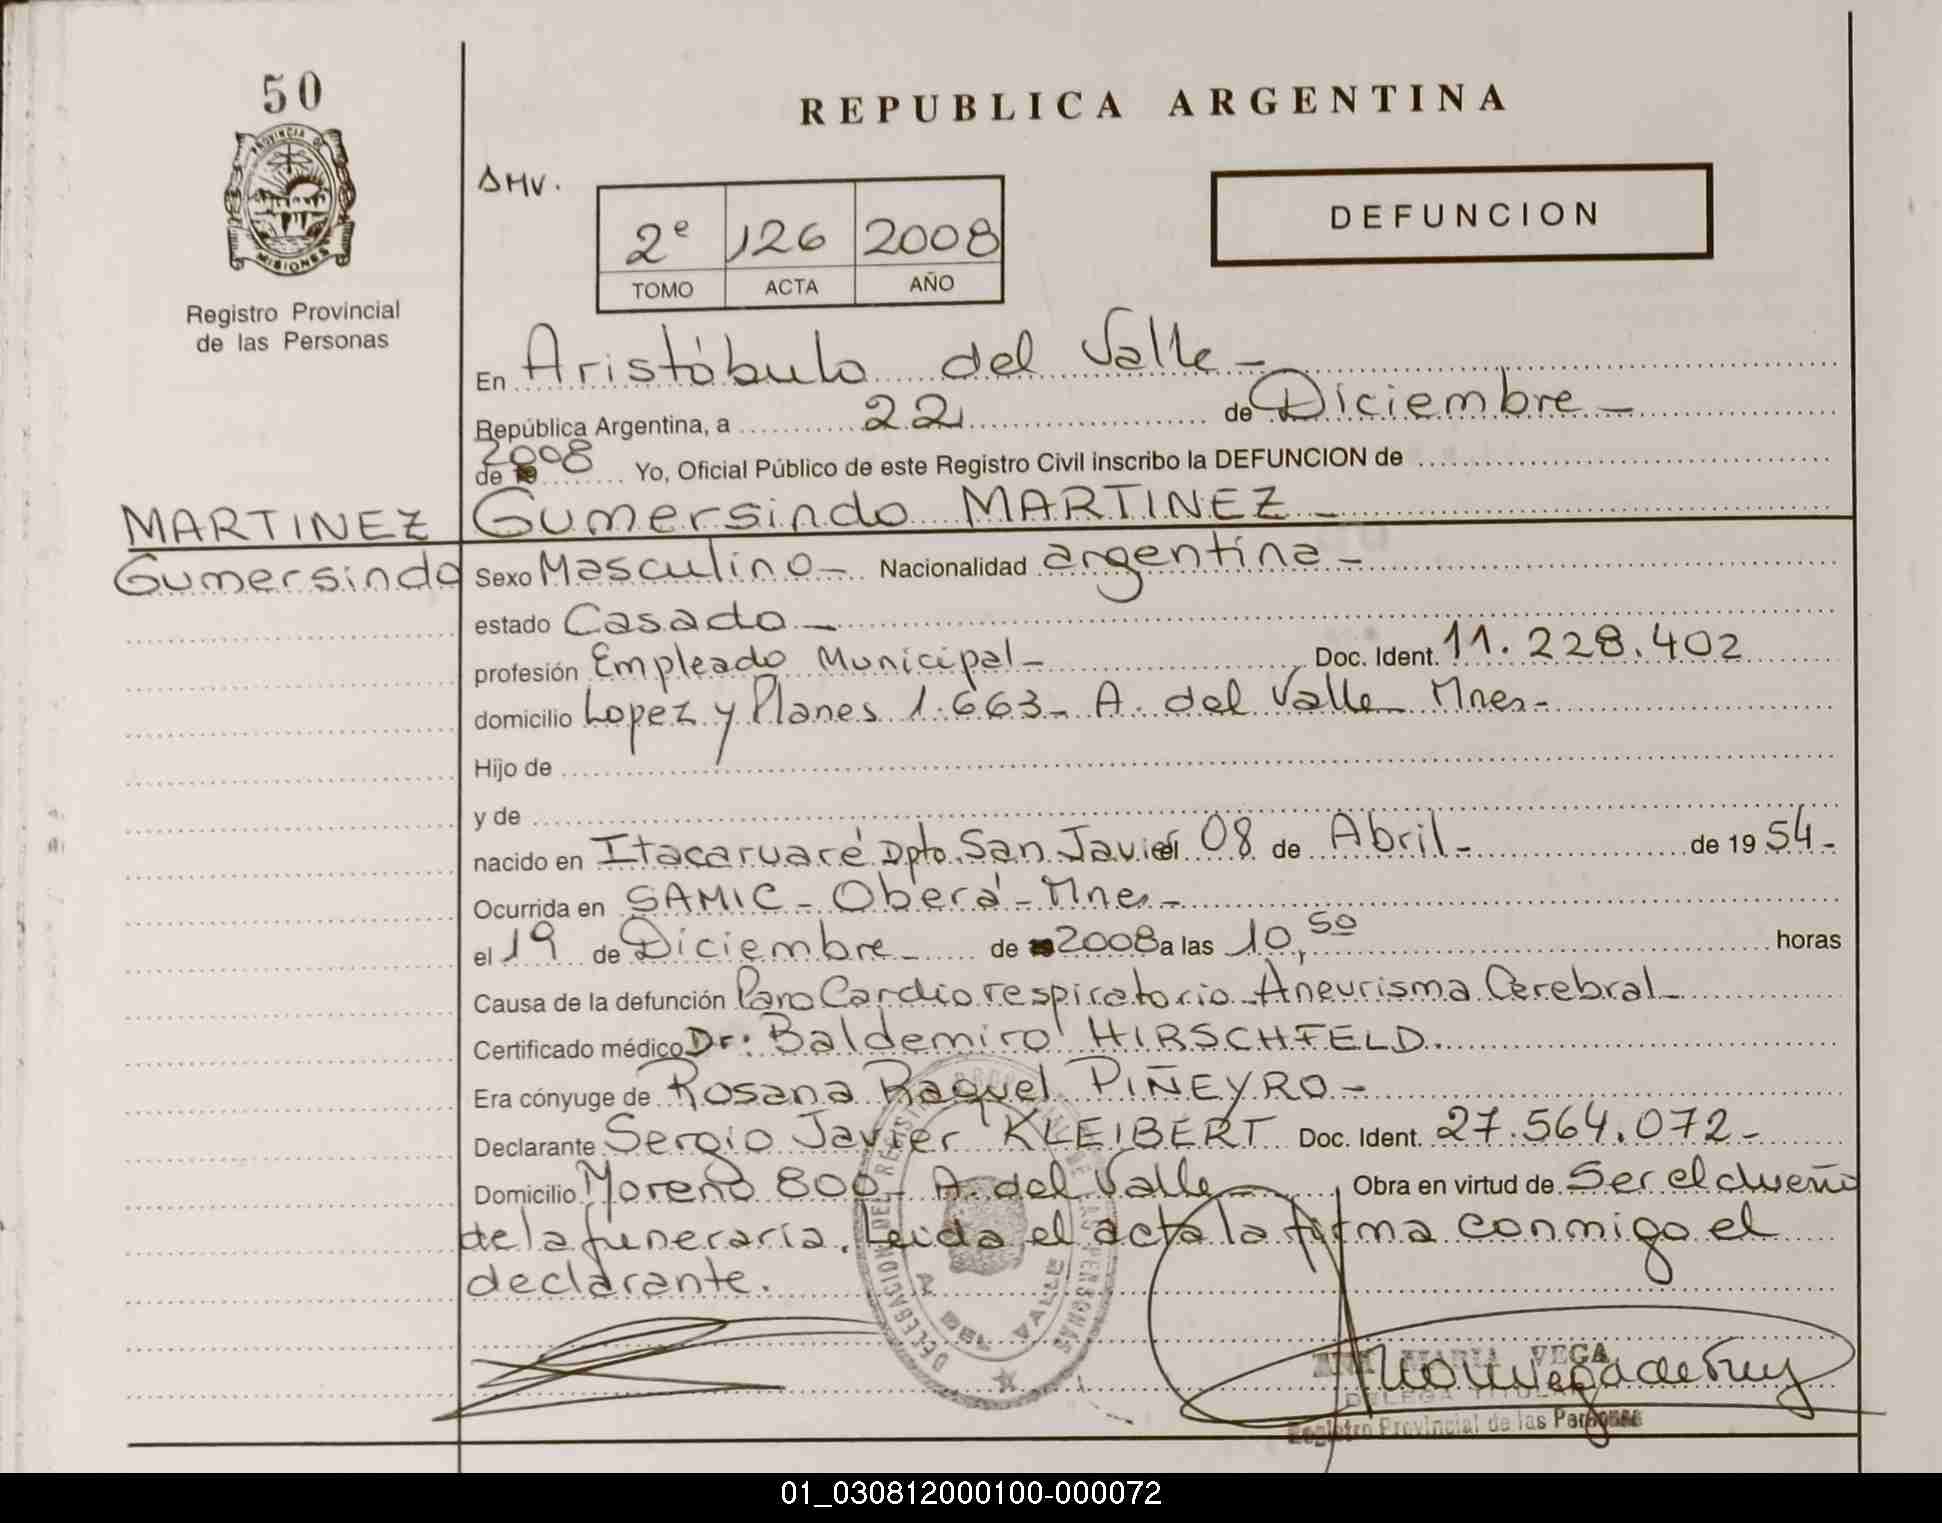 50
PROVINCIA DE
MISIONES
Registro Provincial
de las Personas
REPUBLICA ARGENTINA
2º 126 2008
TOMO ACTA AÑO
DEFUNCION
En Aristóbulo del Valle -
República Argentina, a 22 de Diciembre -
de 2008 Yo, Oficial Público de este Registro Civil inscribo la DEFUNCION de
MARTINEZ Gumersindo MARTINEZ -
Gumersindo Sexo Masculino - Nacionalidad argentina -
estado Casado -
profesión Empleado Municipal - Doc. Ident. 11.228.402
domicilio Lopez y Planes 1.663 - A. del Valle Mnes -
Hijo de
y de
nacido en Itacaruaré Dpto. San Javier 08 de Abril - de 1954 -
Ocurrida en SAMIC - Oberá - Mnes -
el 19 de Diciembre - de 2008 a las 10,50 horas
Causa de la defunción Paro Cardiorespiratorio - Aneurisma Cerebral -
Certificado médico Dr: Baldemiro HIRSCHFELD.
Era cónyuge de Rosana Raquel PIÑEYRO -
Declarante Sergio Javier KLEIBERT Doc. Ident. 27.564.072 -
Domicilio Moreno 800 - A. del Valle - Obra en virtud de Ser el dueño
de la funeraria. Leida el acta la firma conmigo el
declarante.
DELEGACION DEL REGISTRO PROVINCIAL DE LAS PERSONAS
A. DEL VALLE
MARIA VEGA
Registro Provincial de las Personas
01_030812000100-000072